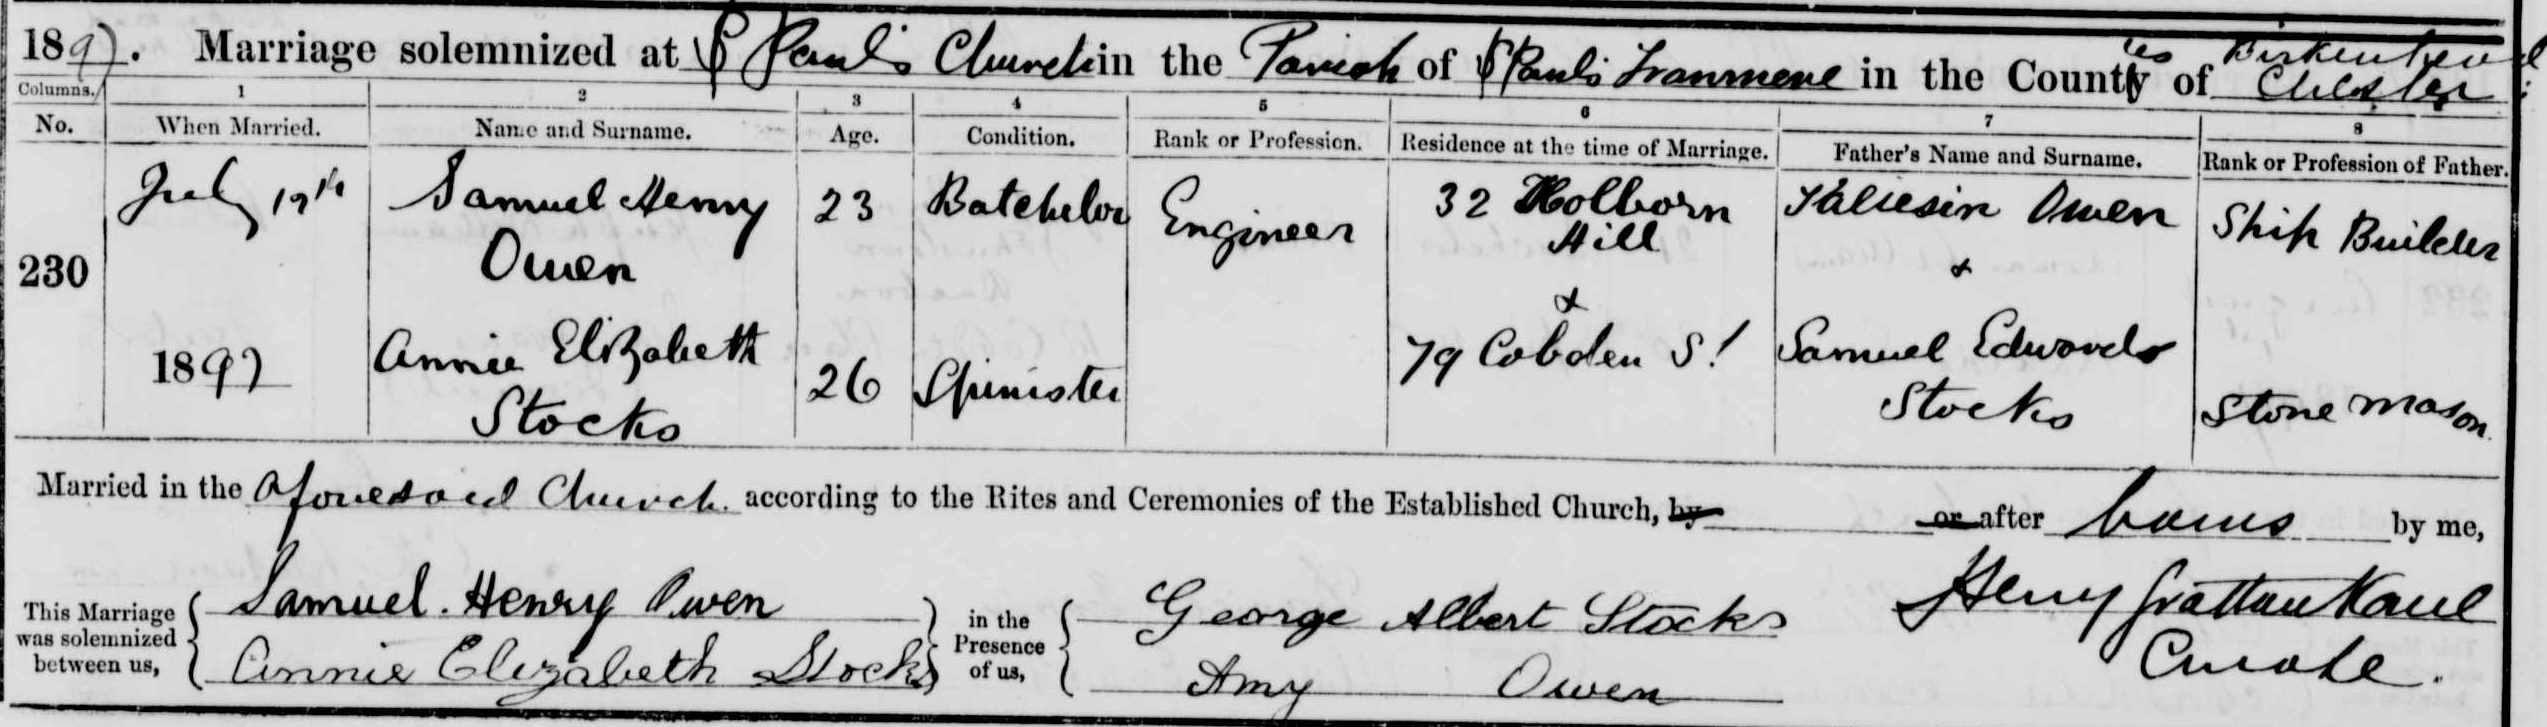 1897. Marriage solemnized at St Paul's Church in the Parish of St Paul's Tranmere in the Counties of Birkenhead Chester
Columns. 1 2 3 4 5 6 7 8
No. When Married. Name and Surname. Age. Condition. Rank or Profession. Residence at the time of Marriage. Father's Name and Surname. Rank or Profession of Father.
230
July 17th
1897
Samuel Henry
Owen
23 Batchelor Engineer
32 Holborn
Hill
Taliesin Owen
Ship Builder
&
&
Annie Elizabeth
Stocks
26 Spinister
79 Cobden St
Samuel Edwards
Stocks
Stone Mason
Married in the Aforesaid Church. according to the Rites and Ceremonies of the Established Church, by or after banns by me,
This Marriage
was solemnized
between us,
Samuel. Henry Owen
Annie Elizabeth Stocks
in the
Presence
of us,
George Albert Stocks
Amy Owen
Henry Grattan
Curate.